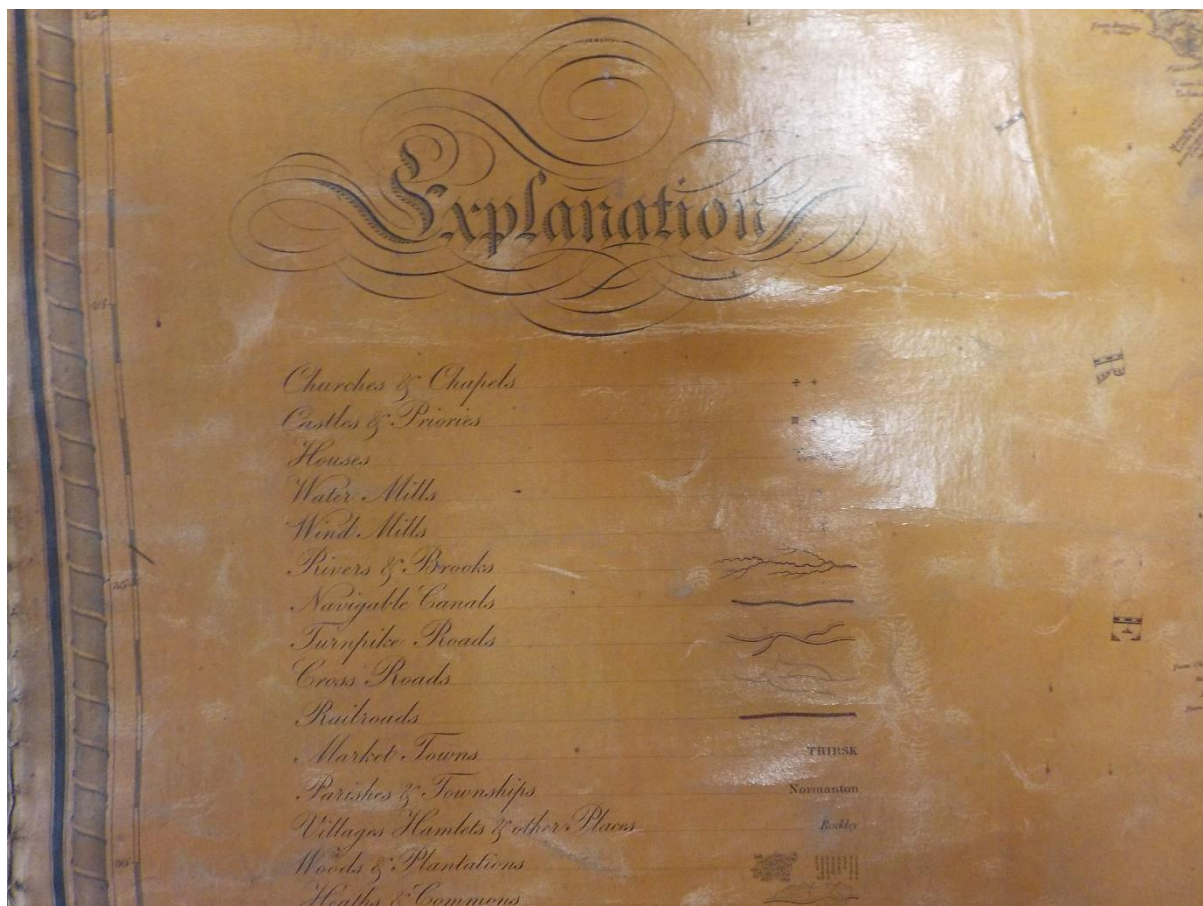 Explanation
Churches & Chapels
Castles & Priories
Houses
Water Mills
Wind Mills
Rivers & Brooks
Navigable Canals
Turnpike Roads
Cross Roads
Railroads
Market Towns THIRSK
Parishes & Townships Normanton
Villages Hamlets & other Places Rockley
Woods & Plantations
Heaths & Commons